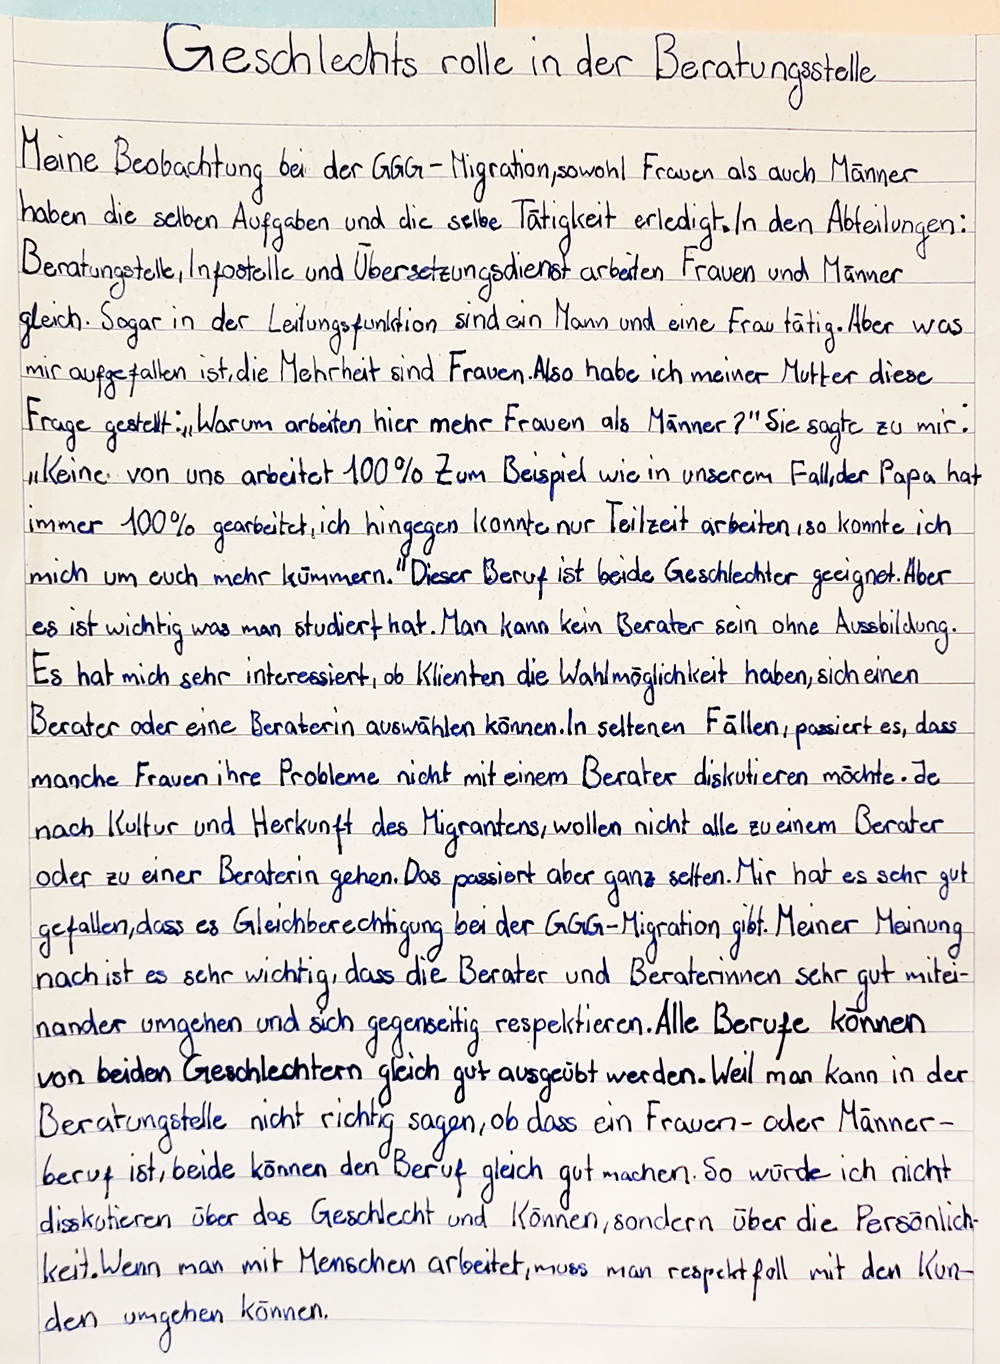 Geschlechts rolle in der Beratungsstelle
Meine Beobachtung bei der GGG-Migration, sowohl Frauen als auch Männer
haben die selben Aufgaben und die selbe Tätigkeit erledigt. In den Abteilungen:
Beratungstelle, Infostelle und Übersetzungsdienst arbeiten Frauen und Männer
gleich. Sogar in der Leitungsfunktion sind ein Mann und eine Frau tätig. Aber was
mir aufgefallen ist, die Mehrheit sind Frauen. Also habe ich meiner Mutter diese
Frage gestellt: „Warum arbeiten hier mehr Frauen als Männer?" Sie sagte zu mir:
„Keine von uns arbeitet 100% Zum Beispiel wie in unserem Fall, der Papa hat
immer 100% gearbeitet, ich hingegen konnte nur Teilzeit arbeiten, so konnte ich
mich um euch mehr kümmern." Dieser Beruf ist beide Geschlechter geeignet. Aber
es ist wichtig was man studiert hat. Man kann kein Berater sein ohne Aussbildung.
Es hat mich sehr interessiert, ob Klienten die Wahlmöglichkeit haben, sich einen
Berater oder eine Beraterin auswählen können. In seltenen Fällen, passiert es, dass
manche Frauen ihre Probleme nicht mit einem Berater diskutieren möchte. Je
nach Kultur und Herkunft des Migrantens, wollen nicht alle zu einem Berater
oder zu einer Beraterin gehen. Das passiert aber ganz selten. Mir hat es sehr gut
gefallen, dass es Gleichberechtigung bei der GGG-Migration gibt. Meiner Meinung
nach ist es sehr wichtig, dass die Berater und Beraterinnen sehr gut mitei-
nander umgehen und sich gegenseitig respektieren. Alle Berufe können
von beiden Geschlechtern gleich gut ausgeübt werden. Weil man kann in der
Beratungstelle nicht richtig sagen, ob dass ein Frauen- oder Männer-
beruf ist, beide können den Beruf gleich gut machen. So würde ich nicht
disskutieren über das Geschlecht und Können, sondern über die Persönlich-
keit. Wenn man mit Menschen arbeitet, muss man respektfoll mit den Kun-
den umgehen können.